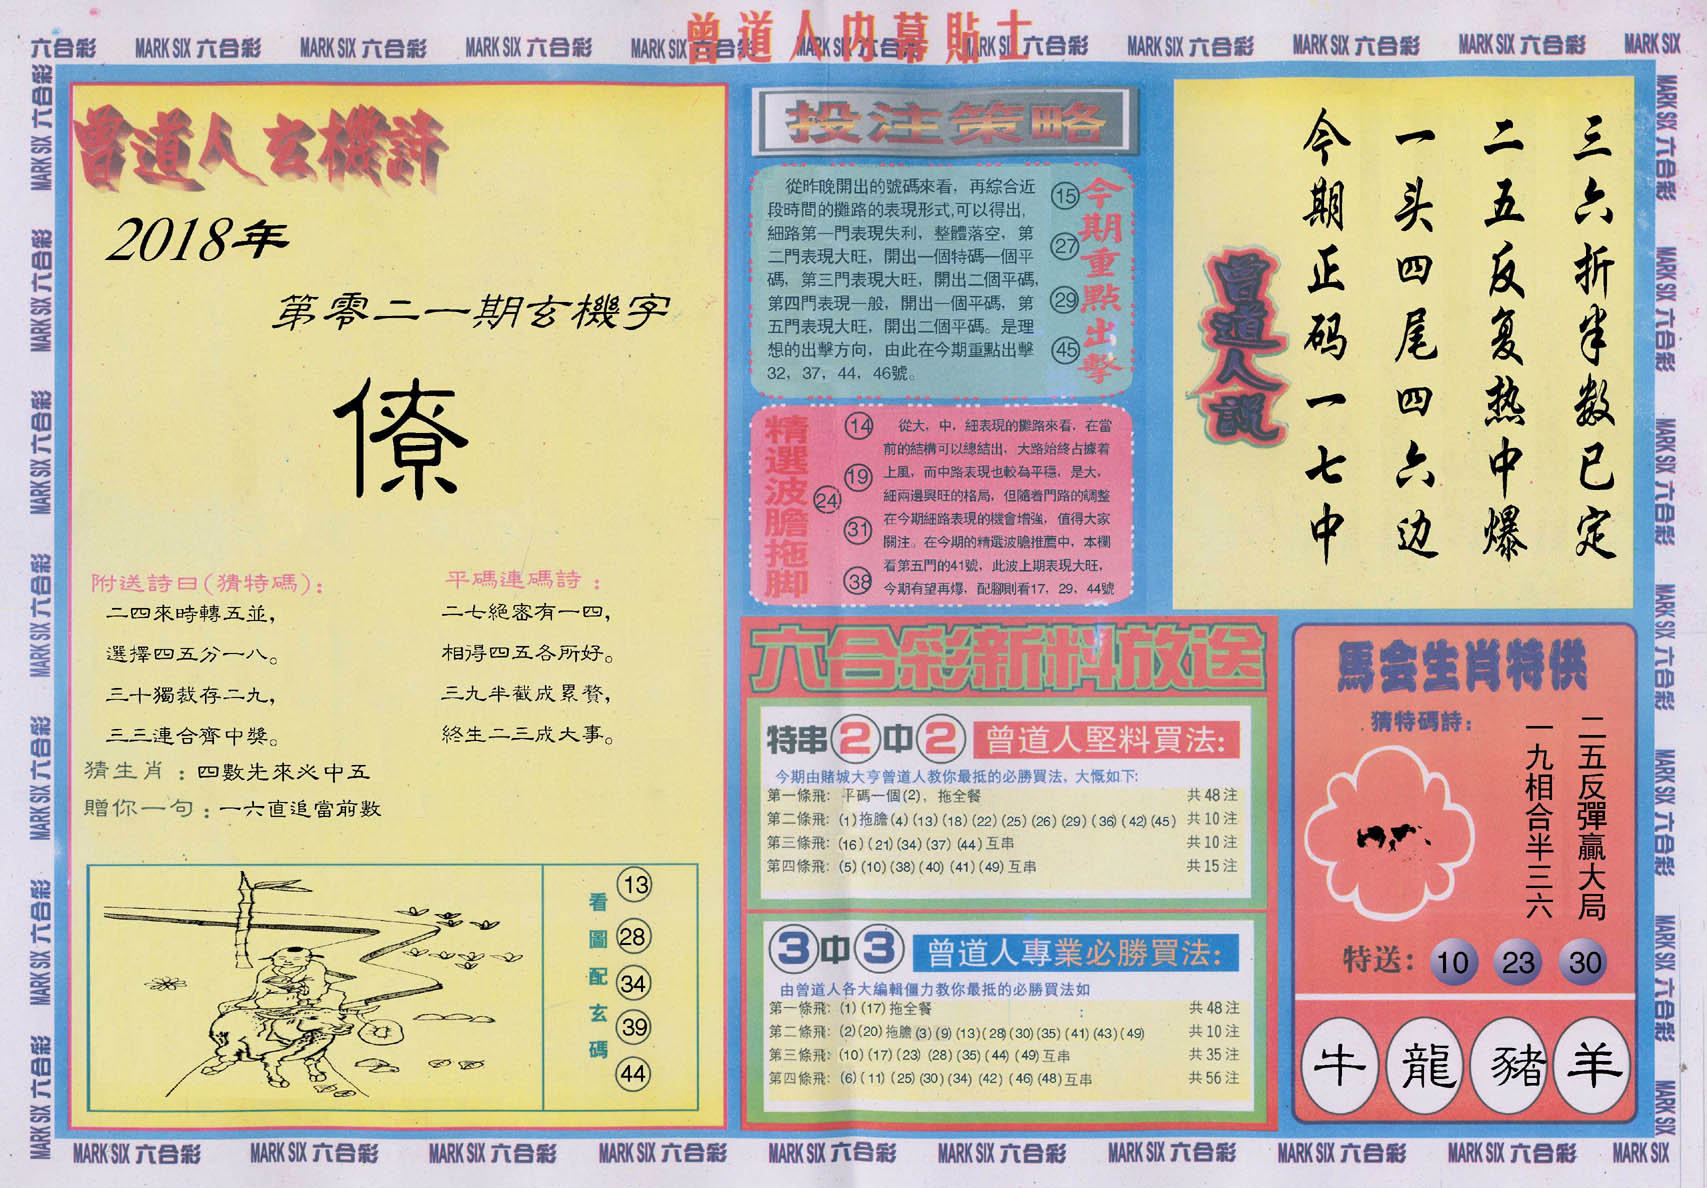 曾道人内幕貼士
六合彩 MARK SIX 六合彩 MARK SIX 六合彩 MARK SIX 六合彩 MARK SIX 六合彩 MARK SIX 六合彩 MARK SIX 六合彩 MARK SIX 六合彩 MARK SIX 六合彩 MARK SIX 六合彩 MARK SIX
曾道人玄機詩
2018年
第零二一期玄機字
僚
附送詩曰(猜特碼):
二四來時轉五並,
選擇四五分一八。
三十獨裁存二九,
三三連合齊中獎。
平碼連碼詩:
二七絕密有一四,
相得四五各所好。
三九半截成累贅,
終生二三成大事。
猜生肖:四數先來必中五
贈你一句:一六直追當前數
看圖配玄碼
13
28
34
39
44
投注策略
從昨晚開出的號碼來看，再綜合近
段時間的攤路的表現形式,可以得出,
細路第一門表現失利，整體落空，第
二門表現大旺，開出一個特碼一個平
碼，第三門表現大旺，開出二個平碼,
第四門表現一般，開出一個平碼，第
五門表現大旺，開出二個平碼。是理
想的出擊方向，由此在今期重點出擊
32，37，44，46號。
今期重點出擊
15
27
29
45
精選波膽拖脚
14
19
24
31
38
從大，中，細表現的攤路來看，在當
前的結構可以總結出，大路始終占據着
上風，而中路表現也較為平穩，是大，
細兩邊興旺的格局，但隨着門路的調整
在今期細路表現的機會增強，值得大家
關注。在今期的精選波膽推薦中，本欄
看第五門的41號，此波上期表現大旺，
今期有望再爆，配腳則看17，29，44號
三六折半数已定
二五反复热中爆
一头四尾四六边
今期正码一七中
曾道人説
六合彩新料放送
特串2中2 曾道人堅料買法:
今期由賭城大亨曾道人教你最抵的必勝買法，大慨如下:
第一條飛: 平碼一個(2)，拖全餐 共48注
第二條飛: (1)拖膽(4)(13)(18)(22)(25)(26)(29)(36)(42)(45) 共10注
第三條飛: (16)(21)(34)(37)(44)互串 共10注
第四條飛: (5)(10)(38)(40)(41)(49)互串 共15注
3中3 曾道人專業必勝買法:
由曾道人各大編輯僵力教你最抵的必勝買法如
第一條飛: (1)(17)拖全餐 共48注
第二條飛: (2)(20)拖膽(3)(9)(13)(28)(30)(35)(41)(43)(49) 共10注
第三條飛: (10)(17)(23)(28)(35)(44)(49)互串 共35注
第四條飛: (6)(11)(25)(30)(34)(42)(46)(48)互串 共56注
馬会生肖特供
猜特碼詩:
二五反彈贏大局
一九相合半三六
特送: 10 23 30
牛 龍 豬 羊
MARK SIX 六合彩 MARK SIX 六合彩 MARK SIX 六合彩 MARK SIX 六合彩 MARK SIX 六合彩 MARK SIX 六合彩 MARK SIX 六合彩 MARK SIX 六合彩 MARK SIX 六合彩 MARK SIX